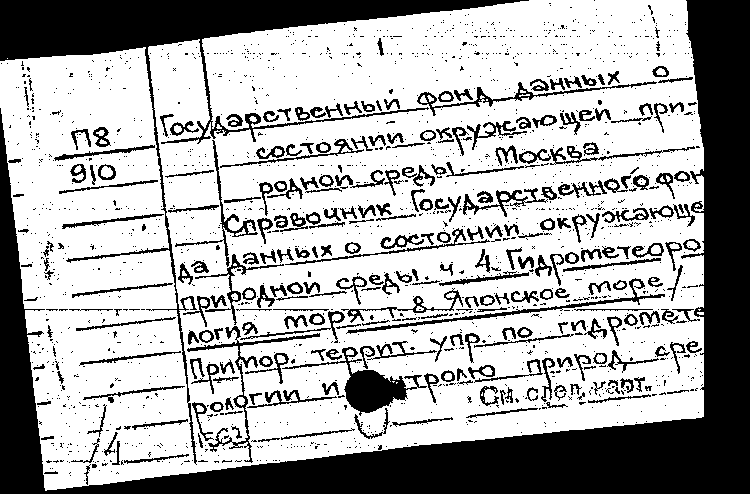 1
П8
910
Государственный фонд данных о
состоянии окружающей при-
родной среды. Москва.
Справочник Государственного фон
да данных о состоянии окружающе
природной среды. ч. 4. Гидрометеоро
логия моря. т. 8. Японское море /
Примор. террит. упр. по гидромете
рологии и нтролю природ. сре
См. след. карт.
1